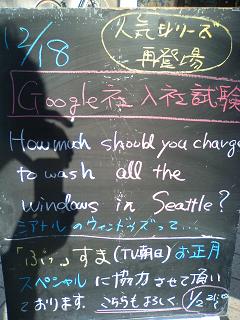 12/18
人気シリーズ
再登場
Google社入社試験
How much should you charge
to wash all the
windows in Seattle?
シアトルのウィンドウズって...
「ぷっ」すま(TV朝日)お正月
スペシャルに協力させて頂い
ております。こちらもよろしく。